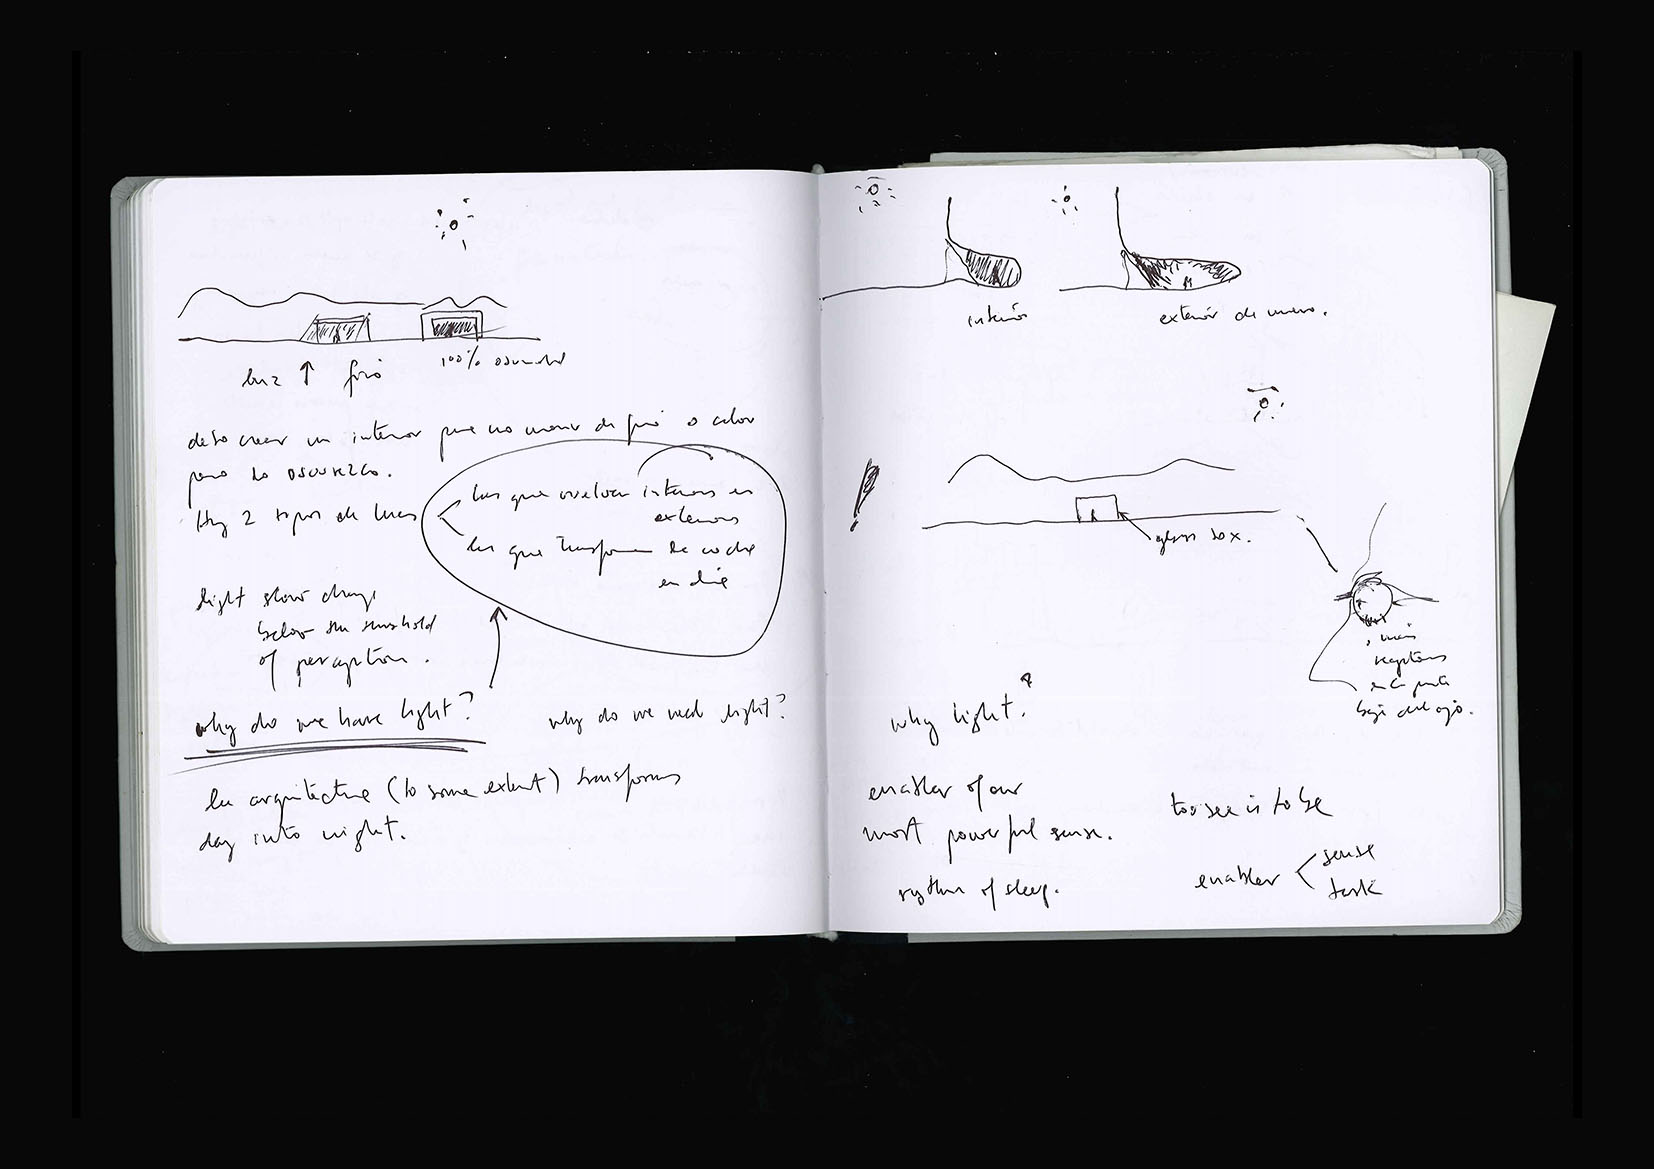 luz ↑ frio
100% oscuridad
debo crear un interior que no muera de frio o calor
pero lo oscurezco.
Hay 2 tipos de luces
luz que vuelven interiores en
exteriores
luz que transforma la noche
en dia
light slow change
below the threshold
of perception.
why do we have light?
why do we need light?
la arquitecture (to some extent) transforms
day into night.
interior
exterior de nuevo.
glass box.
más
receptores
en la parte
baja del ojo.
why light?
enabler of our
most powerful sense.
rythm of sleep.
to see is to be
enabler
sense
task